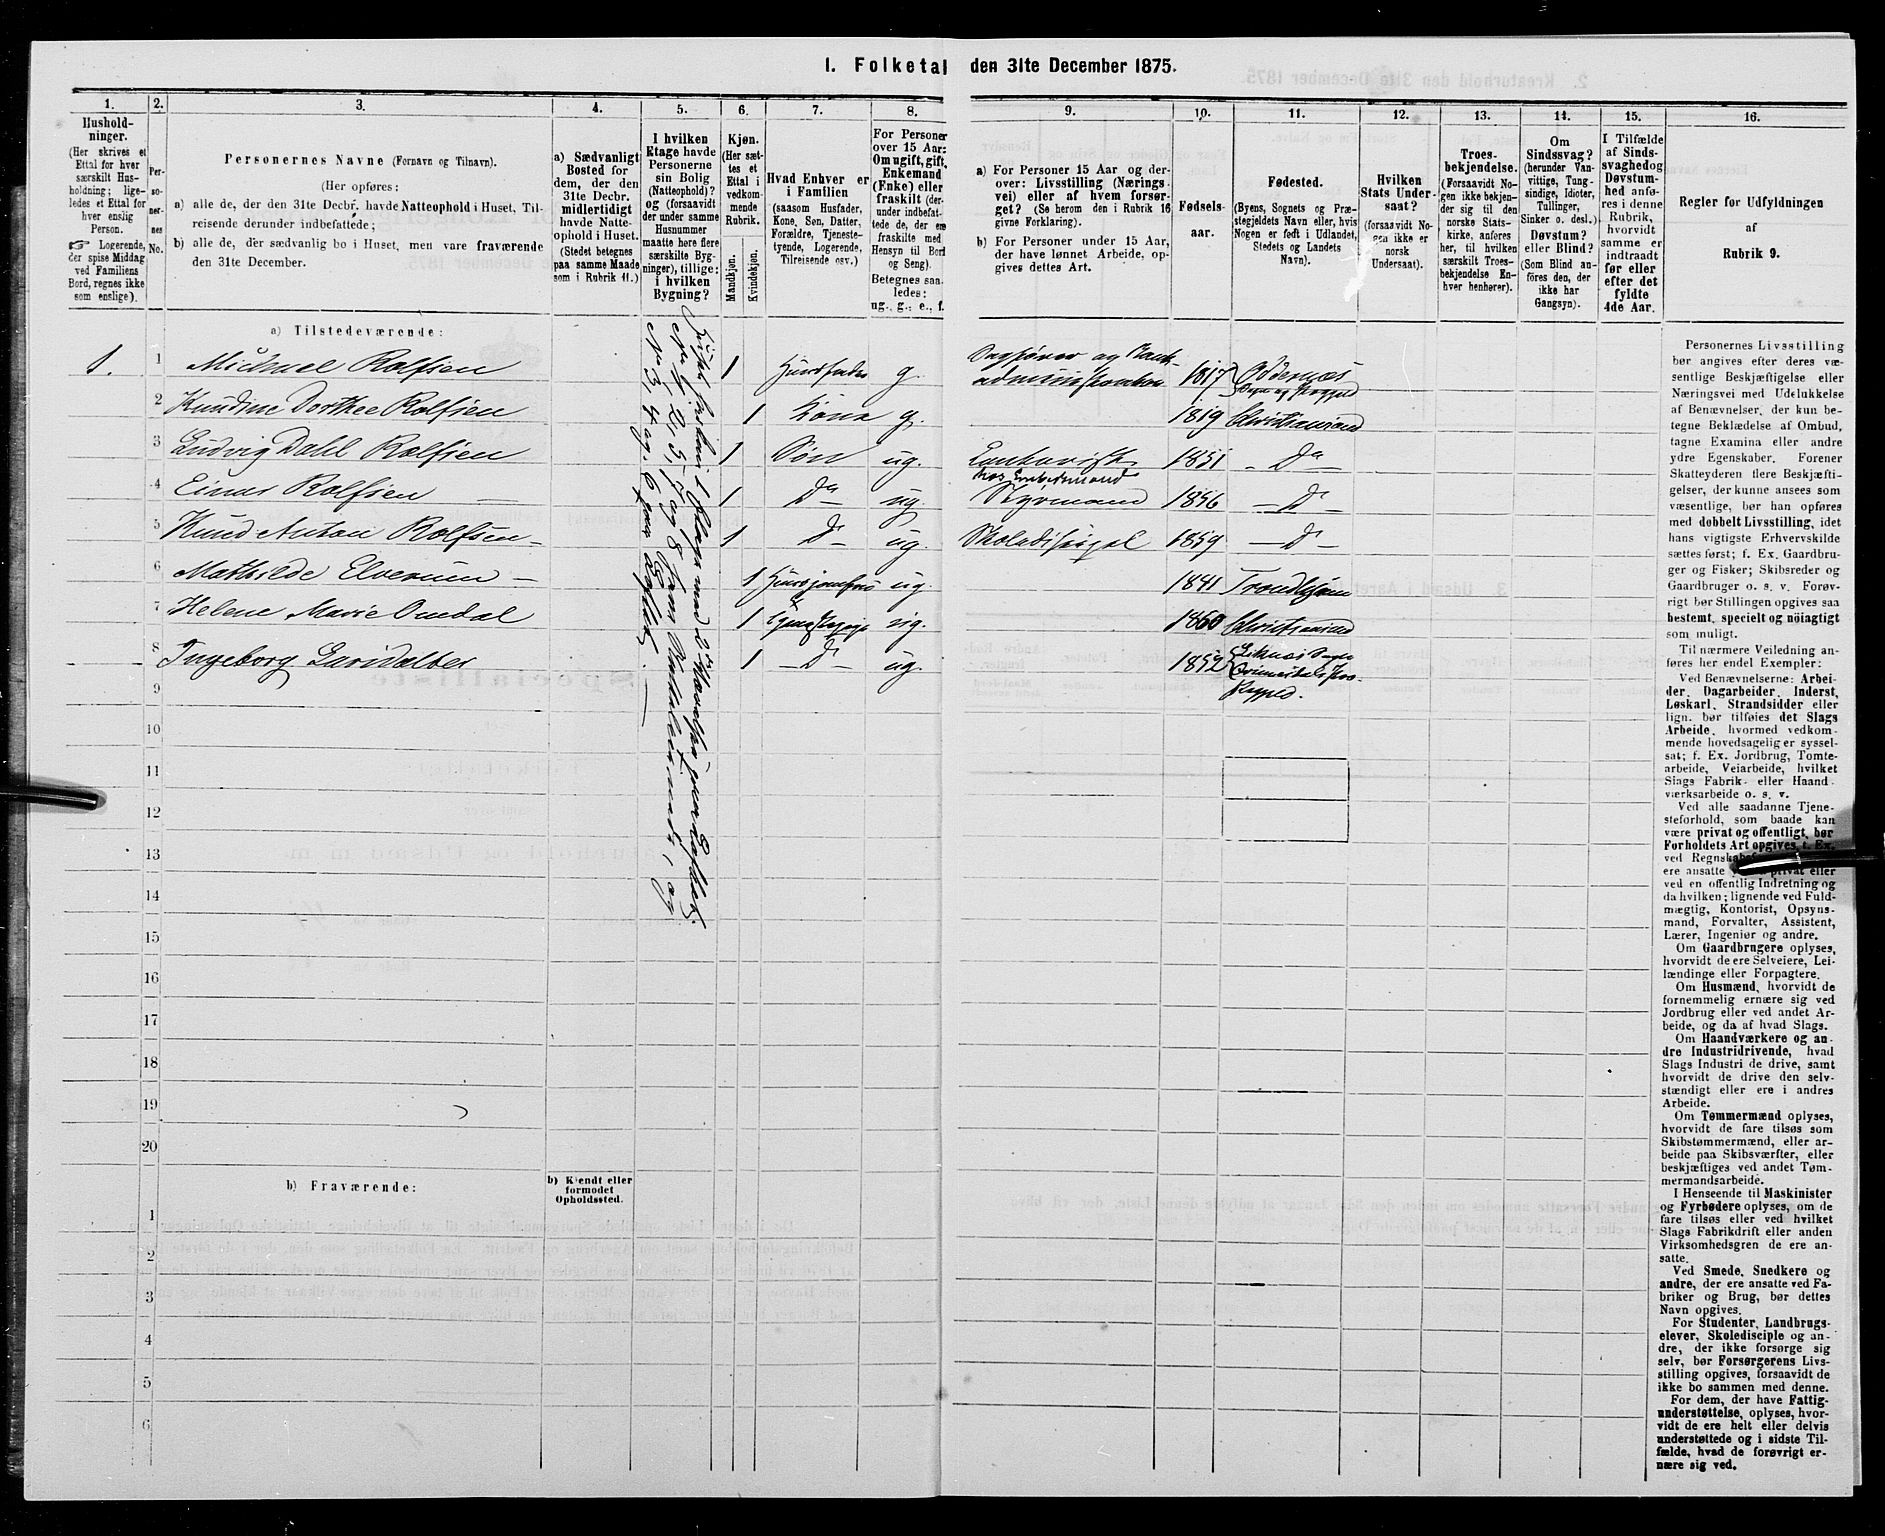 1. Folketal den 31te December 1875.
1.
Hushold-
ninger.
(Her skrives et
Ettal for hver
særskilt Hus-
holdning; lige-
ledes et Ettal for
hver enslig
Person.
☞ Logerende,
der spise Middag
ved Familiens
Bord, regnes ikke
som enslige).
2.
Per-
so-
ner-
nes
No.
3.
Personernes Navne (Fornavn og Tilnavn).
(Her opføres:
a) alle de, der den 31te Decbr. havde Natteophold i Huset, Til-
reisende derunder indbefattede;
b) alle de, der sædvanlig bo i Huset, men vare fraværende
den 31te December.
4.
a) Sædvanligt
Bosted for
dem, der den
31te Decbr.
midlertidigt
havde Natte-
ophold i Huset.
(Stedet betegnes
paa samme Maade
som i Rubrik 11.)
5.
I hvilken
Etage havde
Personerne
sin Bolig
(Natteophold)?
og (forsaavidt
der under samme
Husnummer
maatte høre flere
særskilte Byg-
ninger), tillige:
i hvilken
Bygning?
6.
Kjøn.
(Her sæt-
tes et
Ettal i
vedkom-
mende
Rubrik.
Mandkjøn.
Kvindekjøn.
7.
Hvad Enhver er
i Familien
(saasom Husfader,
Kone, Søn, Datter,
Forældre, Tjeneste-
tyende, Logerende,
Tilreisende osv.)
8.
For Personer
over 15 Aar:
Om ugift, gift,
Enkemand
(Enke) eller
fraskilt (der-
under indbefat-
tede de, der ere
fraskilte med
Hensyn til Bord
og Seng).
Betegnes saa-
ledes:
ug., g., e., f.
9.
a) For Personer 15 Aar og der-
over: Livsstilling (Nærings-
vei) eller af hvem forsør-
get? (Se herom den i Rubrik 16
givne Forklaring).
b) For Personer under 15 Aar,
der have lønnet Arbeide, op-
gives dettes Art.
10.
Fødsels-
aar.
11.
Fødested.
(Byens, Sognets og Præ-
stegjeldets Navn eller, hvis
Nogen er født i Udlandet,
Stedets og Landets
Navn).
12.
Hvilken
Stats Under-
saat?
(forsaavidt No-
gen ikke er
norsk
Undersaat).
13.
Troes-
bekjendelse.
(Forsaavidt No-
gen ikke bekjen-
der sig til den
norske Stats-
kirke, anføres
her, til hvilken
særskilt Troes-
bekjendelse En-
hver henhører).
14.
Om
Sindssvag?
(herunder Van-
vittige, Tung-
sindige, Idioter,
Tullinger,
Sinker o. desl.)
Døvstum?
eller Blind?
(Som Blind an-
føres den, der
ikke har
Gangsyn).
15.
I Tilfælde
af Sinds-
svaghed og
Døvstum-
hed anfø-
res i denne
Rubrik,
hvorvidt
samme er
indtraadt
før eller
efter det
fyldte
4de Aar.
16.
Regler for Udfyldningen
af
Rubrik 9.
a) Tilstedeværende:
1. 1 Michael Rolfsen 1 Husfader g. Sagfører og Bank-
administrator 1817 Oddernæs
Sogn og Præstegjeld
2 Kundine Dorthee Rolfsen 1 Kone g. 1819 Christianssand
3 Ludvig Dahl Rolfsen 1 Søn ug. Contorist
hos Embedsmand 1851 - Do -
4 Einar Rolfsen 1 Do ug Styrmand 1856 - Do
5 Knud Anton Rolfsen 1 Do ug. Skoledisipel 1859 - Do -
6 Mathilde Elverum 1 Huusjomfru ug. 1841 Trondhjem
7 Helene Marie Omdal 1 Tjenestepige ug. 1860 Christianssand
8 Ingeborg 1 - Do - ug. 1852
9
10
11
12
13
14
15
16
17
18
19
20
b) Fraværende:
b) Kjendt eller
formodet
Opholdssted.
1
2
3
4
5
6
Personernes Livsstilling
bør angives efter deres væ-
sentlige Beskjæftigelse eller
Næringsvei med Udelukkelse
af Benævnelser, der kun be-
tegne Beklædelse af Ombud,
tagne Examina eller andre
ydre Egenskaber. Forener
Skatteyderen flere Beskjæfti-
gelser, der kunne ansees som
væsentlige, bør han opføres
med dobbelt Livsstilling, idet
hans vigtigste Erhvervskilde
sættes først; f. Ex. Gaardbru-
ger og Fisker; Skibsreder og
Gaardbruger o. s. v. Forøv-
rigt bør Stillingen opgives saa
bestemt, specielt og nöiagtigt
som muligt.
Til nærmere Veiledning an-
føres her endel Exempler:
Ved Benævnelserne: Arbei-
der, Dagarbeider, Inderst,
Løskarl, Strandsidder eller
lign. bør tilføies det Slags
Arbeide, hvormed vedkom-
mende hovedsagelig er syssel-
sat; f. Ex. Jordbrug, Tomte-
arbeide, Veiarbeide, hvilket
Slags Fabrik- eller Haand-
værksarbeide o. s. v.
Ved alle saadanne Tjene-
steforhold, som baade kan
være privat og offentligt, bør
Forholdets Art opgives, f. Ex.
ved
ere ansatte privat eller
ved en offentlig Indretning og
da hvilken; lignende ved Fuld-
mægtig, Kontorist, Opsyns-
mand, Forvalter, Assistent,
Lærer, Ingeniør og andre.
Om Gaardbrugere oplyses,
hvorvidt de ere Selveiere, Lei-
lændinge eller Forpagtere.
Om Husmænd, hvorvidt de
fornemmelig ernære sig ved
Jordbrug eller ved andet Ar-
beide, og da af hvad Slags.
Om Haandværkere og an-
dre Industridrivende, hvad
Slags Industri de drive, samt
hvorvidt de drive den selv-
stændigt eller ere i andres
Arbeide.
Om Tømmermænd oplyses,
hvorvidt de fare tilsøs som
Skibstømmermænd, eller ar-
beide paa Skibsværfter, eller
beskjæftiges ved andet Tøm-
mermandsarbeide.
I Henseende til Maskinister
og Fyrbødere oplyses, om de
fare tilsøs eller ved hvilket
Slags Fabrikdrift eller anden
Virksomhedsgren de ere an-
satte.
Ved Smede, Snedkere og
andre, der ere ansatte ved Fa-
briker og Brug, bør dettes
Navn opgives.
For Studenter, Landbrugs-
elever, Skoledisciple og an-
dre, der ikke forsørge sig
selv, bør Forsørgerens Livs-
stilling opgives, forsaavidt de
ikke bo sammen med denne.
For dem, der have Fattig-
understøttelse, oplyses, hvor-
vidt de ere helt eller delvis
understøttede og i sidste Til-
fælde, hvad de forøvrigt er-
nære sig ved.